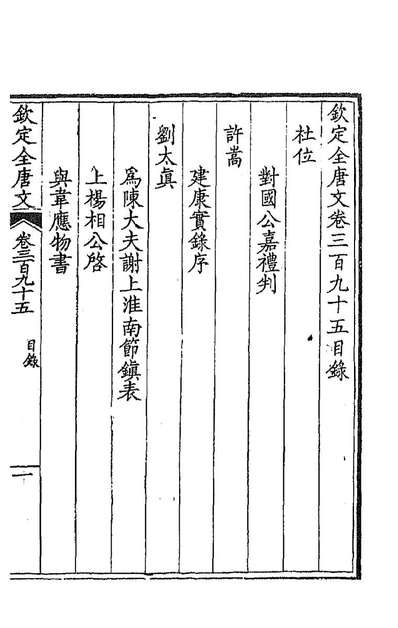 欽定全唐文卷三百九十五目錄
杜位
對國公嘉禮判
許嵩
建康實錄序
劉太真
為陳大夫謝上淮南節鎮表
上楊相公啓
與韋應物書
欽定全唐文 卷三百九十五 目錄 一